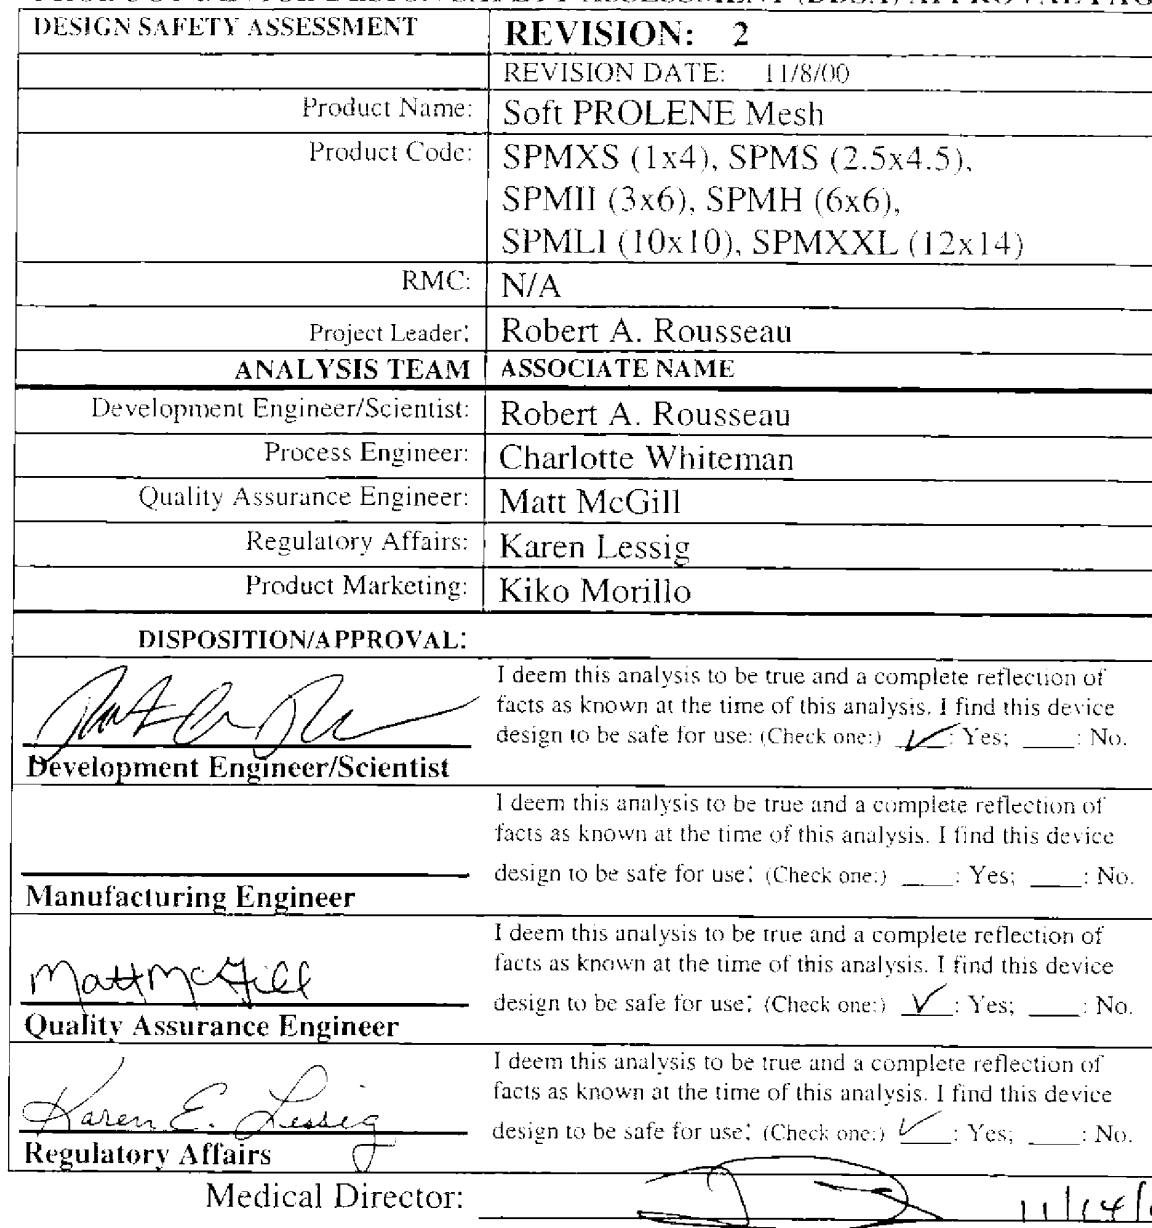 DESIGN SAFETY ASSESSMENT REVISION: 2
REVISION DATE: 11/8/00
Product Name: Soft PROLENE Mesh
Product Code: SPMXS (1x4), SPMS (2.5x4.5),
SPMII (3x6), SPMH (6x6),
SPMLI (10x10), SPMXXL (12x14)
RMC: N/A
Project Leader: Robert A. Rousseau
ANALYSIS TEAM ASSOCIATE NAME
Development Engineer/Scientist: Robert A. Rousseau
Process Engineer: Charlotte Whiteman
Quality Assurance Engineer: Matt McGill
Regulatory Affairs: Karen Lessig
Product Marketing: Kiko Morillo
DISPOSITION/APPROVAL:
I deem this analysis to be true and a complete reflection of
facts as known at the time of this analysis. I find this device
design to be safe for use: (Check one:) ✓: Yes; ____: No.
Development Engineer/Scientist
I deem this analysis to be true and a complete reflection of
facts as known at the time of this analysis. I find this device
design to be safe for use: (Check one:) ____: Yes; ____: No.
Manufacturing Engineer
I deem this analysis to be true and a complete reflection of
facts as known at the time of this analysis. I find this device
Matt McGill
design to be safe for use: (Check one:) ✓: Yes; ____: No.
Quality Assurance Engineer
I deem this analysis to be true and a complete reflection of
facts as known at the time of this analysis. I find this device
Karen E. Lessig
design to be safe for use: (Check one:) ✓: Yes; ____: No.
Regulatory Affairs
Medical Director: 11/14/